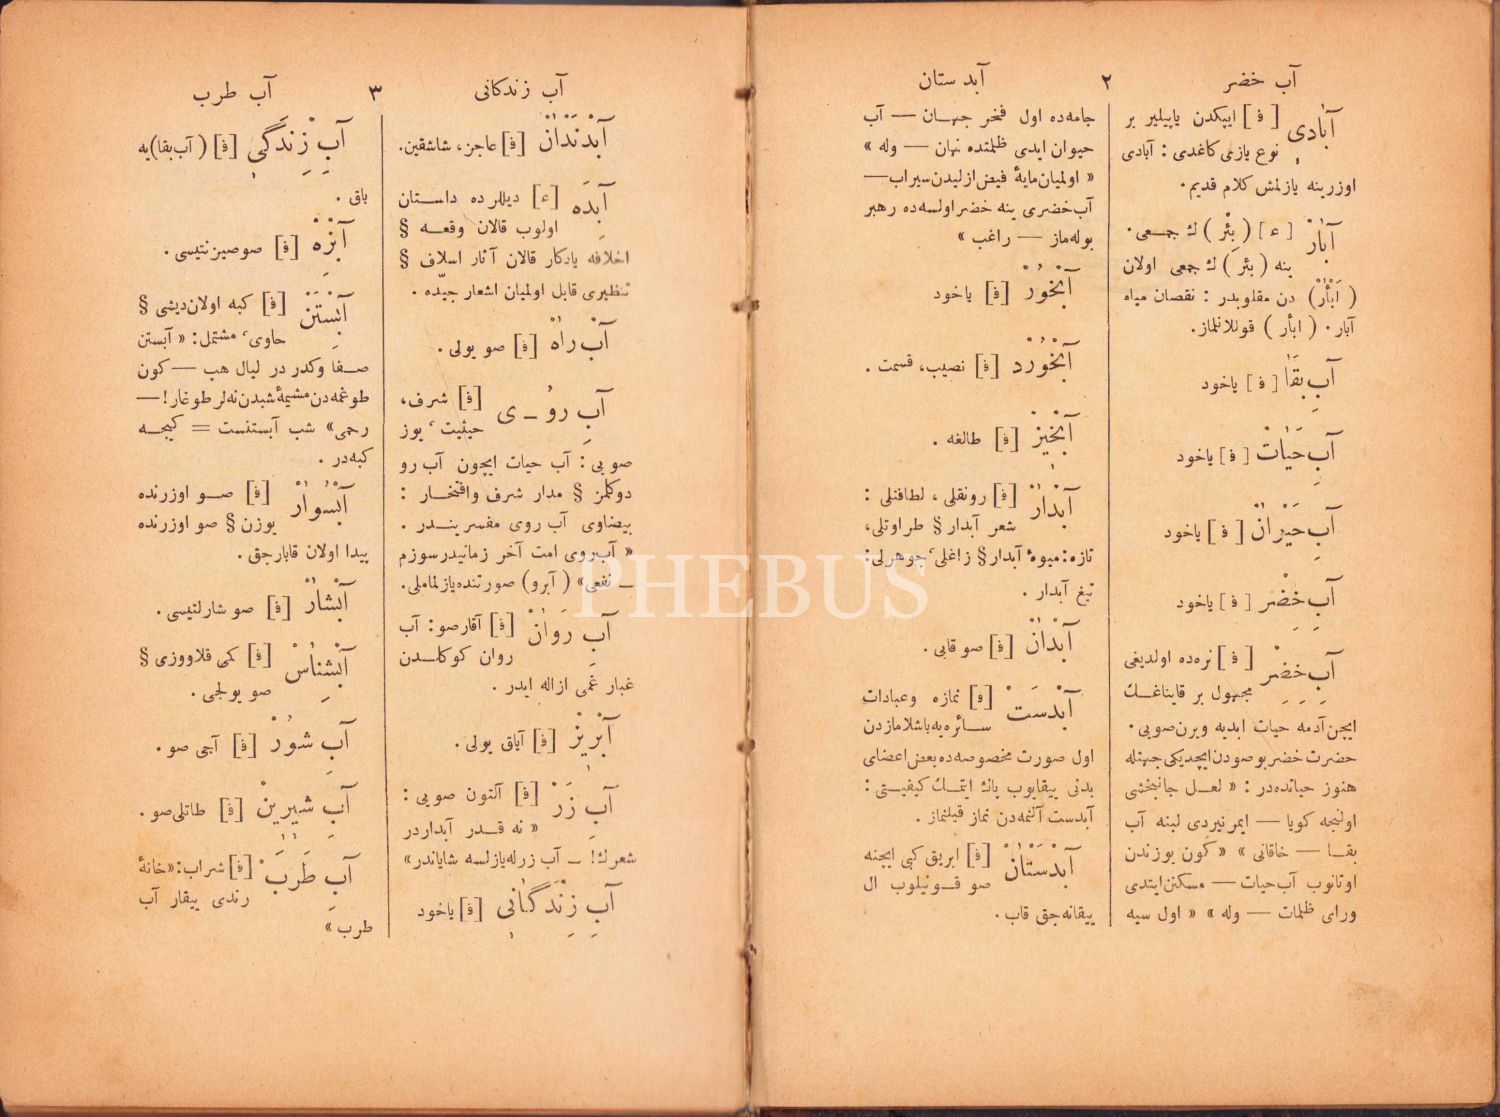 آب خضر ۲ آبدستان
آبادی [ فـ ] ایپكدن یاپیلیر بر
نوع یازمی كاغدی : آبادی
اوزرینه یازلمش كلام قدیم.
آبَارْ [ ع ] ( بِئْر ) ك جمعی.
ینه ( بئر ) ك جمعی اولان
( اَبْأرْ ) دن مقلوبدر : نقصان میاه
آبار. ( ابأر ) قوللانلماز.
آبِ بقَا [ فـ ] یاخود
آبِ حَیَاتْ [ فـ ] یاخود
آبِ حَیْرانْ [ فـ ] یاخود
آبِ خِضْرِ [ فـ ] یاخود
آبِ خِضِرْ [ فـ ] نره‌ده اولدیغی
مجهول بر قایناغك
ایچن آدمه حیات ابدیه ویرن صویی.
حضرت خضر بو صودن ایچدیكی جهتله
هنوز حیاتده‌در : « لعل جانبخشی
اولنجه كویا — ایمر نیردی لبنه آب
بقا — خاقانی » « كون یوزندن
اوتانوب آب‌حیات — مسكن ایتدی
ورای ظلمات — وله » « اول سیه
جامه‌ده اول فخر جهان — آب
حیوان ایدی ظلمتده نهان — وله »
« اولمیان مایۀ فیض ازلیدن سیراب —
آب خضری ینه خضر اولسه‌ده رهبر
بوله‌ماز — راغب »
آبْخُورْ [فـ] یاخود
آبْخُورْدْ [فـ] نصیب، قسمت .
آبْخِیزْ [فـ] طالغه .
آبْدَارْ [فـ] رونقلی ، لطافتلی :
شعر آبدار § طراوتلی،
تازه : میوۀ آبدار § زاغلی ٬ جوهرلی :
تیغ آبدار .
آبْدَانْ [فـ] صو قابی .
آبْدَسَتْ [فـ] نمازه وعبادات
سائره‌یه باشلامازدن
اول صورت مخصوصه‌ده بعض اعضای
بدنی ییقایوب پاك ایتمك كیفیتی :
آبدست آلنمه‌دن نماز قیلنماز .
آبْدَسْتَانْ [فـ] ابریق كبی ایچنه
صو قونیلوب ال
ییقانه‌جق قاب .
آب زندكانی ۳ آب طرب
آبْدَنْدَانْ [فـ] عاجز، شاشقین.
آبِدَه [ع] دیللرده داستان
اولوب قالان وقعه §
اخلافه یادكار قالان آثار اسلاف §
تنظیری قابل اولمیان اشعار جیده .
آبْ راهْ [فـ] صو یولی .
آبِ رُو ـ ی [فـ] شرف،
حیثیت ٬ یوز
صویی : آب حیات ایچون آب رو
دوكلمز § مدار شرف وافتخار :
بیضاوی آب روی مفسریندر .
« آب‌روی امت آخر زمانیدر سوزم
— نفعی » ( آبرو ) صورتنده یازلماملی.
آبِ رَوَانْ [فـ] آقارصو : آب
روان كوكلدن
غبار غمی ازاله ایدر .
آبْرِیزْ [فـ] آیاق یولی.
آبِ زَرْ [فـ] آلتون صویی :
« نه قدر آبداردر
شعرك! — آب زرله یازلسه شایاندر»
آبِ زِنْدَگَانِی [فـ] یاخود
آبِ زِنْدَگِی [فـ] ( آب بقا ) یه
باق .
آبْزِهْ [فـ] صو صیزنتیسی .
آبْسْتَنْ [فـ] كبه اولان دیشی §
حاوی ٬ مشتمل : « آبستن
صفا وكدر در لیال هپ — كون
طوغمه‌دن مشیمۀ شبدن نه‌لر طوغار! —
رحمی » شب آبستنست = كیجه
كبه‌در .
آبْسُوَارْ [فـ] صو اوزرنده
یوزن § صو اوزرنده
پیدا اولان قابارجق .
آبْشَارْ [فـ] صو شارلتیسی .
آبْشِنَاسْ [فـ] كمی قلاووزی §
صو یولجی .
آبِ شُورْ [فـ] آجی صو .
آبِ شِیرِینْ [فـ] طاتلی صو .
آبِ طَرَبْ [فـ] شراب : « خانۀ
رندی ییقار آب
طرب »
PHEBUS